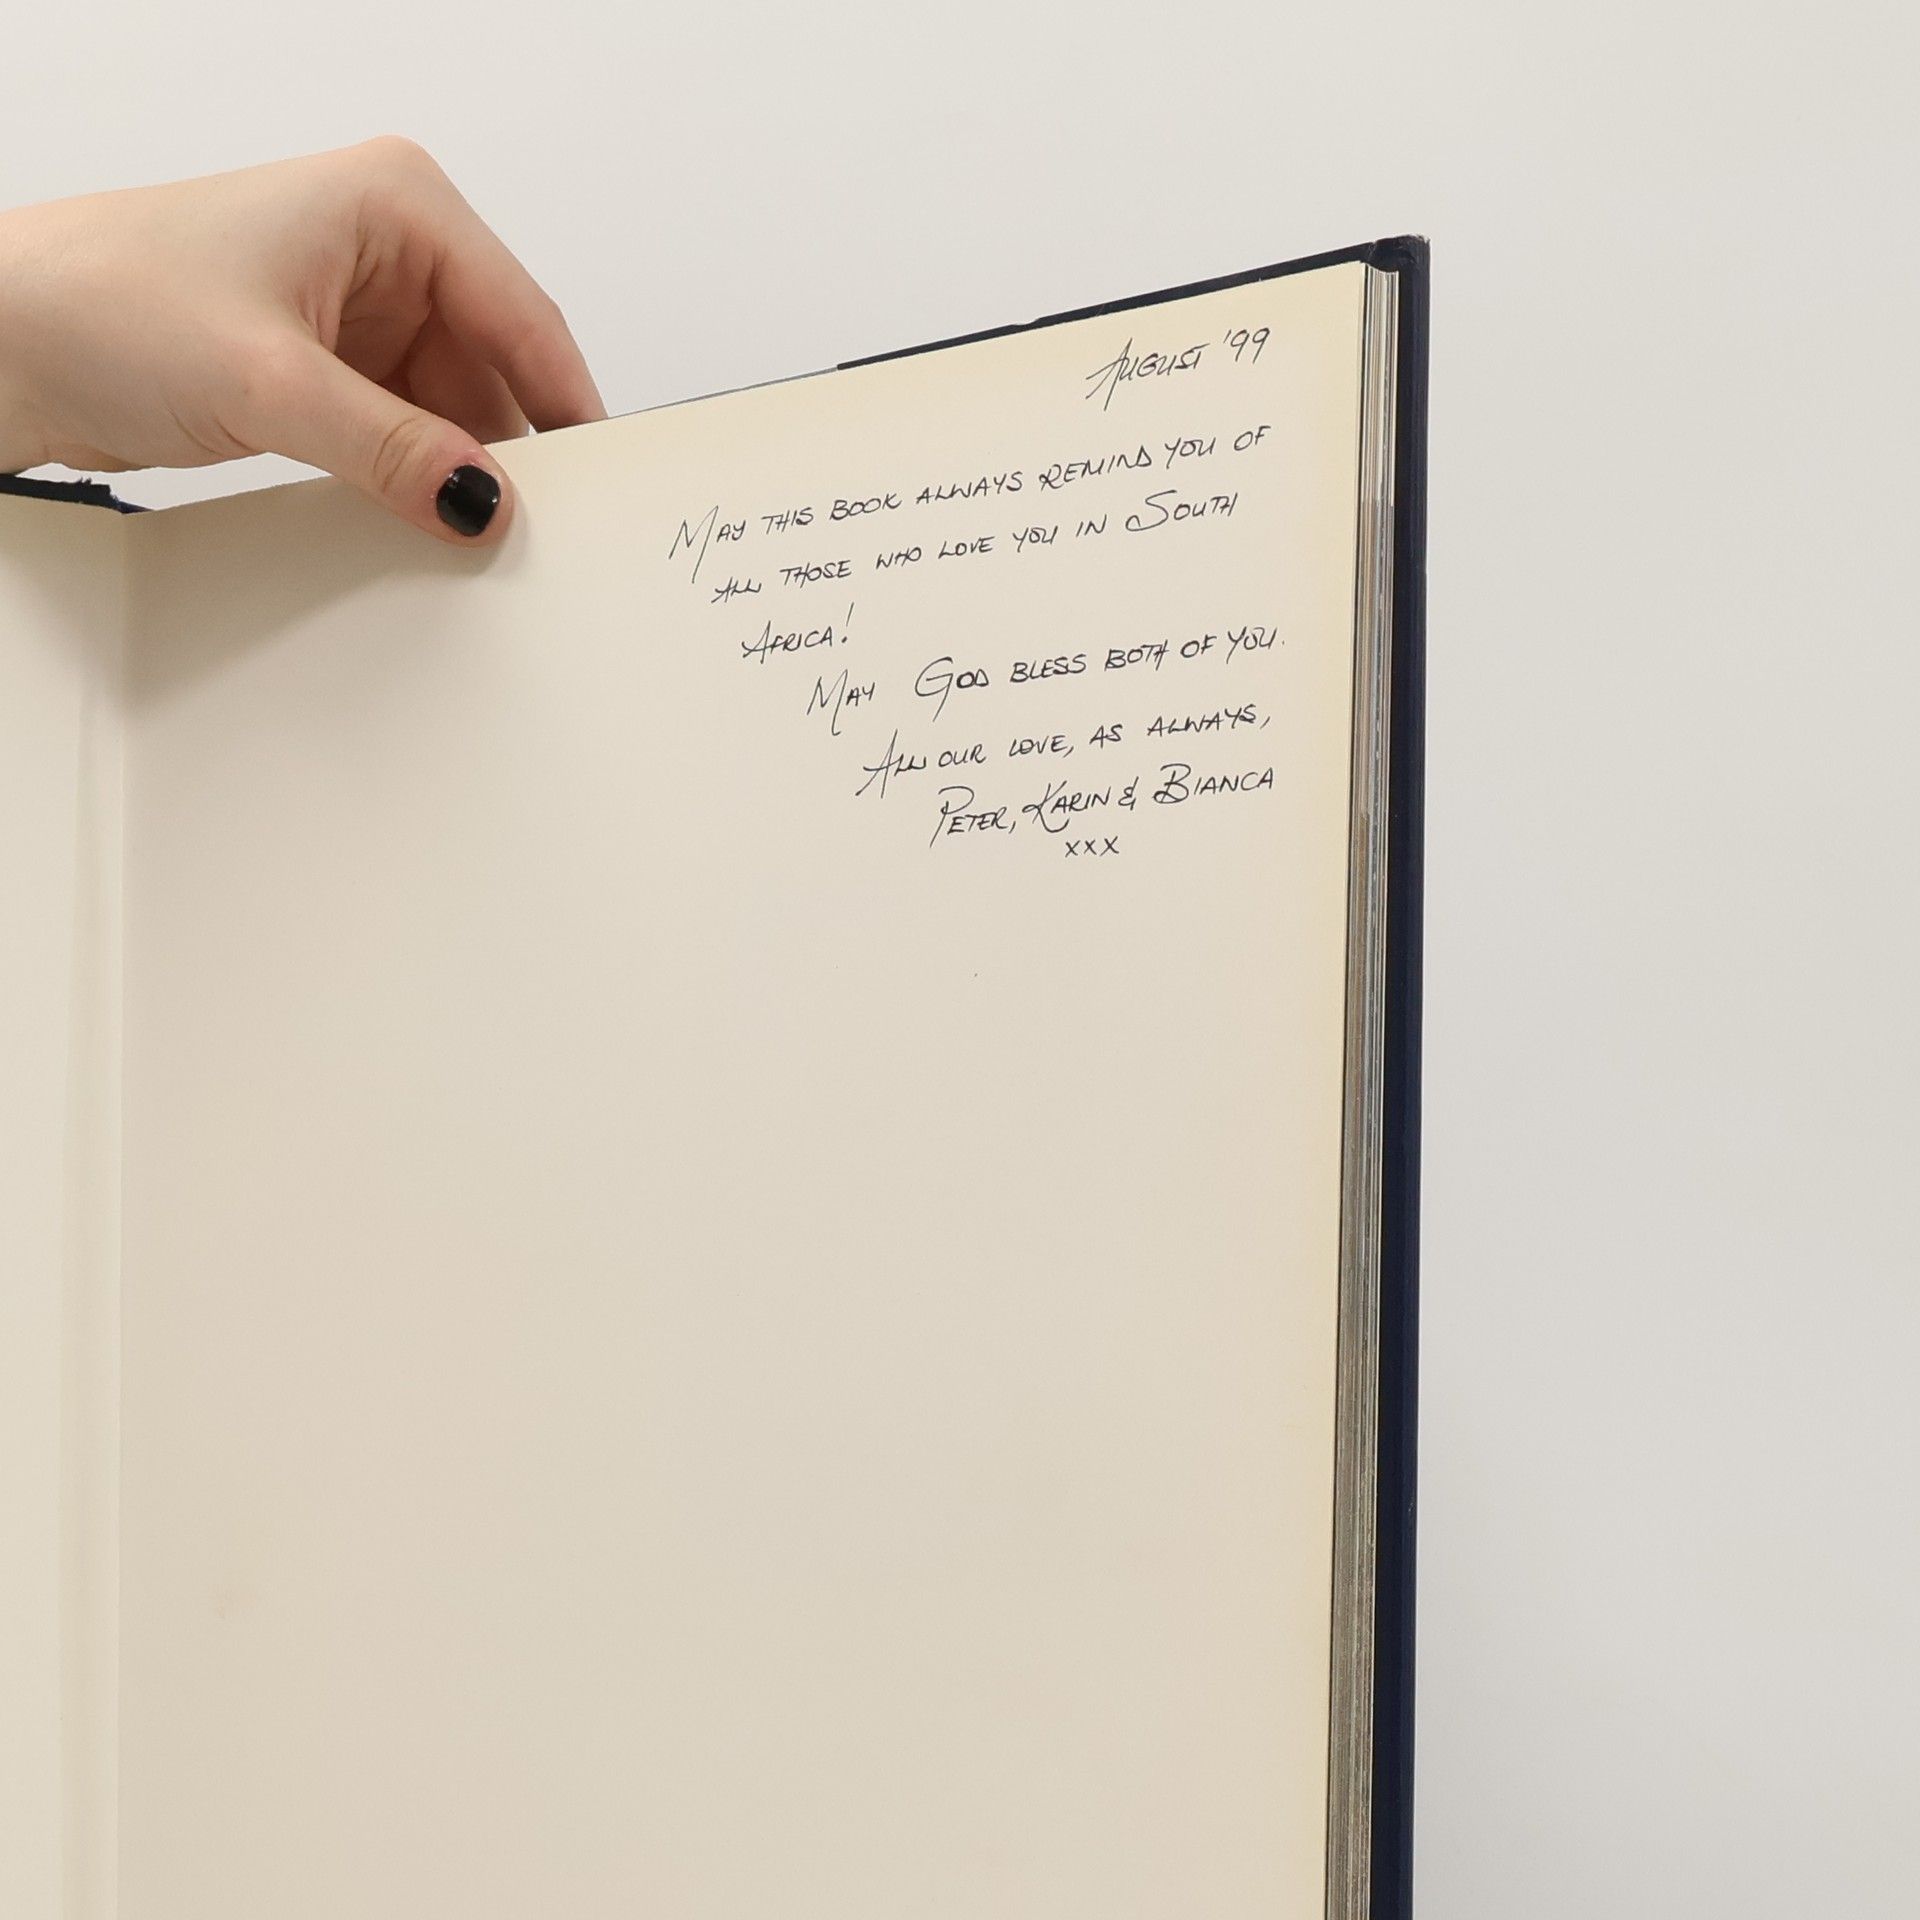 August '99
May this book always remind you of
all those who love you in South
Africa!
May God bless both of you.
All our love, as always,
Peter, Karin & Bianca
xxx